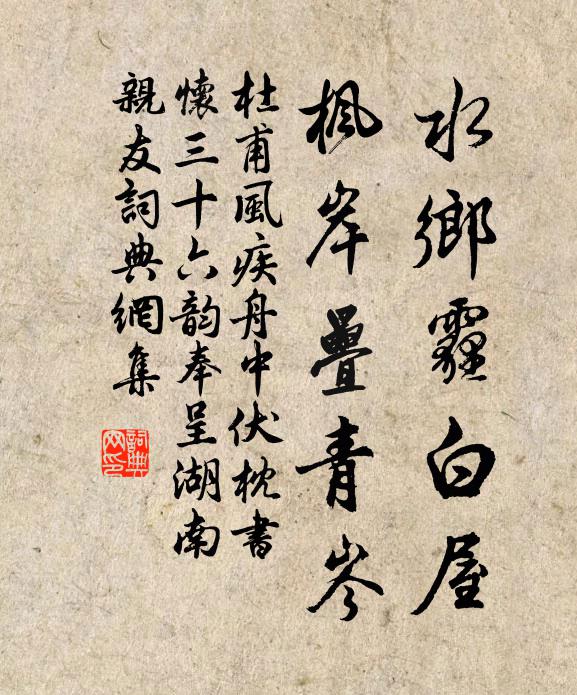 水鄉霾白屋
楓岸疊青岑
杜甫風疾舟中伏枕書
懷三十六韵奉呈湖南
親友詞典網集
詞典網印